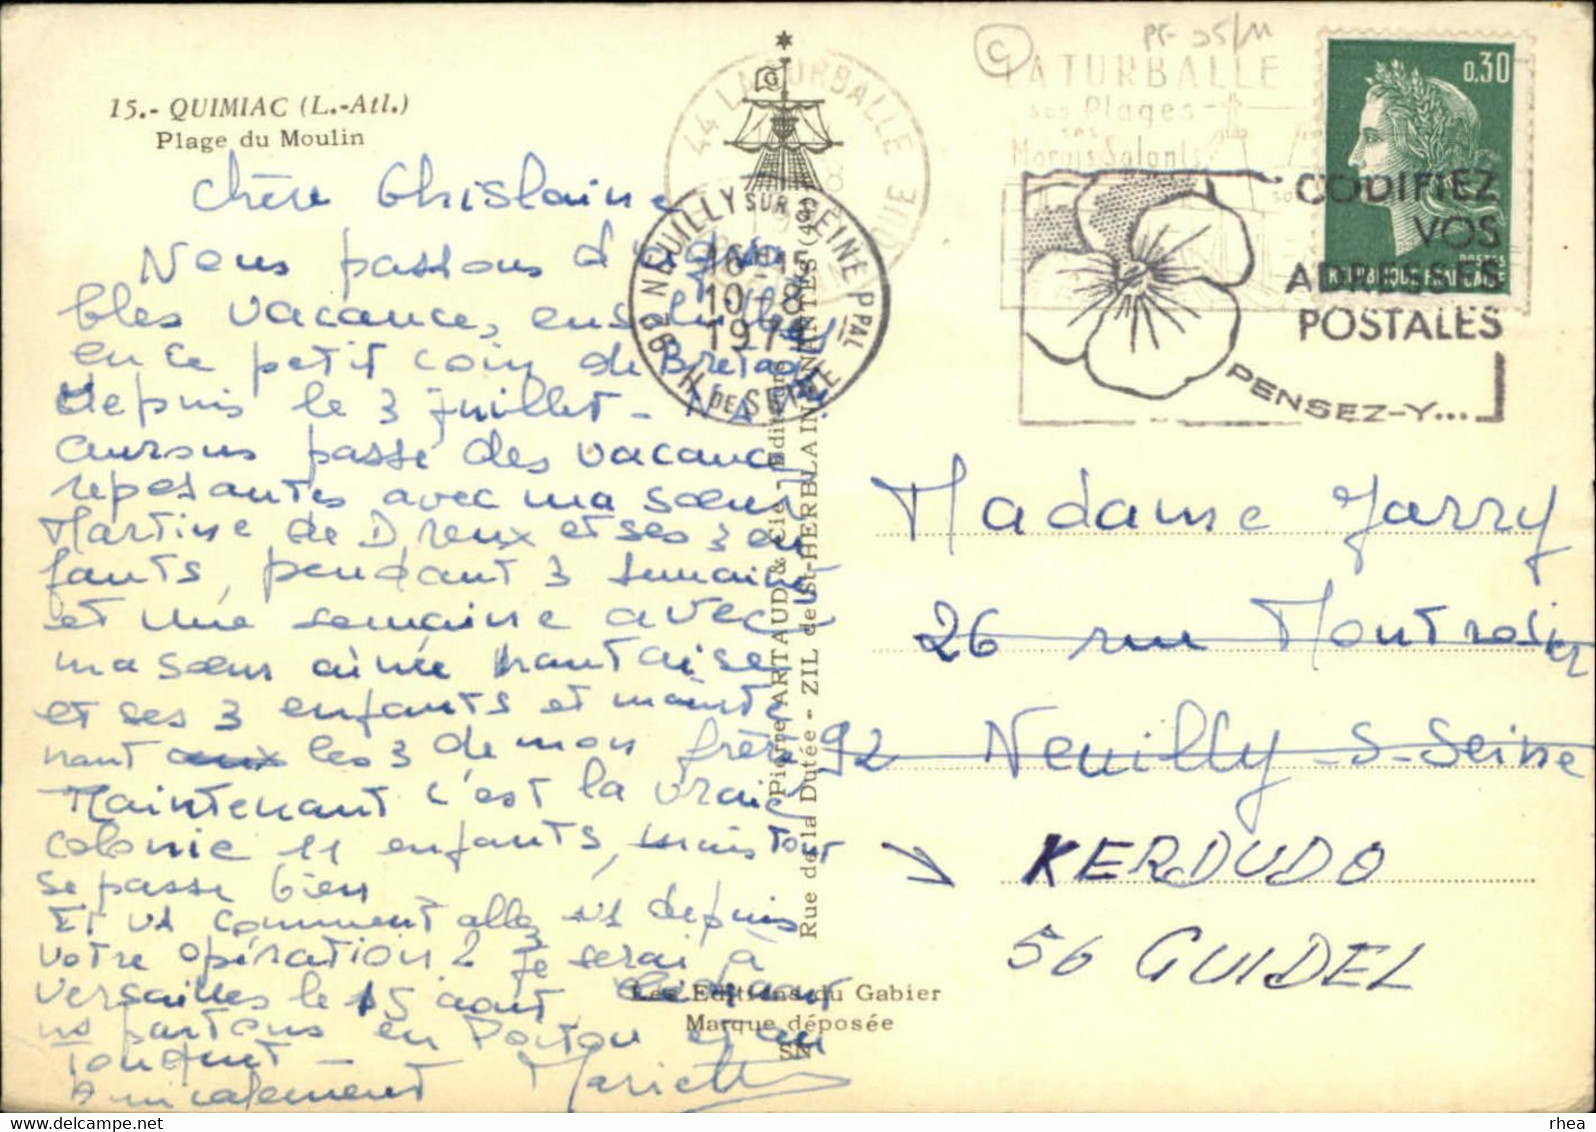 15.- QUIMIAC (L.-Atl.)
Plage du Moulin
Chère Ghislaine
Nous passons d'agréa
bles vacances, ensoleillées
en ce petit coin de Bretagne
Depuis le 3 juillet -
aurons passé des vacances
reposantes avec ma sœur
Martine de Dreux et ses 3 en
fants, pendant 3 semaines
et une semaine avec
ma sœur aînée nantaise
et ses 3 enfants et mainte
nant les 3 de mon frère
Maintenant c'est la vraie
colonie 11 enfants, mais tout
se passe bien
Et vs comment allez vs depuis
votre opération ? Je serai à
Versailles le 15 août
ns partons en Poitou et en
Amicalement Mariette
Pierre ARTAUD & Cie - Editeurs
Rue de la Dutée - ZIL de St-HERBLAIN NANTES (44)
Les Editions du Gabier
Marque déposée
SN
G
44 LA TURBALLE
92 NEUILLY SUR SEINE PPAL
16H15
10-8
197
H. DE SEINE
C
PF 25/11
LA TURBALLE
ses Plages
ses
Marais Salants
0.30
POSTES
REPUBLIQUE FRANCAISE
CODIFIEZ
VOS
ADRESSES
POSTALES
PENSEZ-Y...
Madame Jarry
26 rue Montrosier
92 Neuilly-s-Seine
KERDUDO
56 GUIDEL
rhea